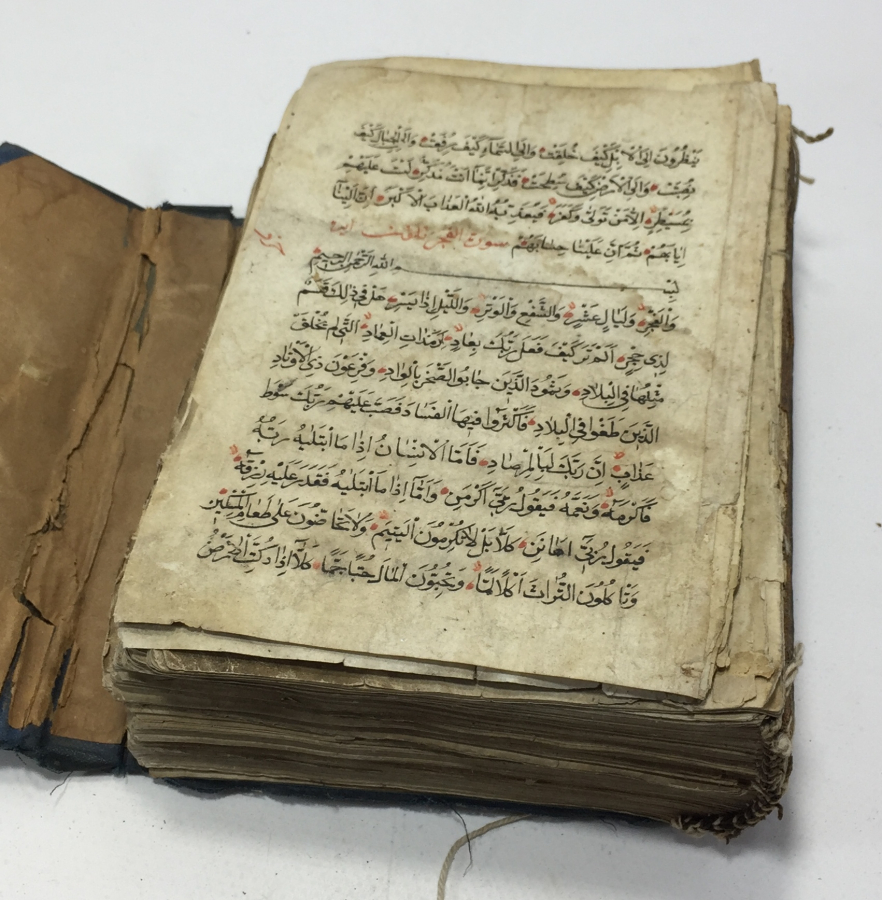 ينظرون الى الابل كيف خلقت والى السماء كيف رفعت والى الجبال كيف
نصبت والى الارض كيف سطحت فذكر انما انت مذكر لست عليهم
بمسيطر الا من تولى وكفر فيعذبه الله العذاب الاكبر ان الينا
ايابهم ثم ان علينا حسابهم سورة الفجر ايه
بسم الله الرحمن الرحيم
والفجر وليال عشر والشفع والوتر والليل اذا يسر هل في ذلك قسم
لذى حجر الم تر كيف فعل ربك بعاد ارم ذات العماد التى لم يخلق
مثلها فى البلاد وثمود الذين جابوا الصخر بالواد وفرعون ذى الاوتاد
الذين طغوا فى البلاد فاكثروا فيها الفساد فصب عليهم ربك سوط
عذاب ان ربك لبالمرصاد فاما الانسان اذا ما ابتليه ربه
فاكرمه ونعمه فيقول ربى اكرمن واما اذا ما ابتليه فقدر عليه رزقه
فيقول ربى اهانن كلا بل لا تكرمون اليتيم ولا تحاضون على طعام المسكين
وتاكلون التراث اكلا لما وتحبون المال حبا جما كلا اذا دكت الارض